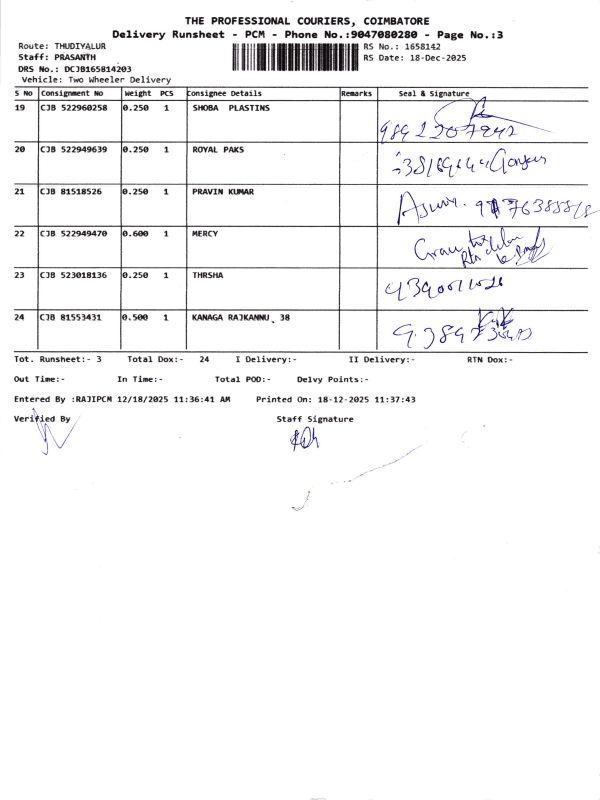 THE PROFESSIONAL COURIERS, COIMBATORE
Delivery Runsheet - PCM - Phone No.:9047080280 - Page No.:3
Route: THUDIYALUR
RS No.: 1658142
Staff: PRASANTH
RS Date: 18-Dec-2025
DRS No.: DCJB165814203
Vehicle: Two Wheeler Delivery
S No Consignment No Weight PCS Consignee Details Remarks Seal & Signature
19 CJB 522960258 0.250 1 SHOBA PLASTINS
20 CJB 522949639 0.250 1 ROYAL PAKS
21 CJB 81518526 0.250 1 PRAVIN KUMAR
22 CJB 522949470 0.600 1 MERCY
23 CJB 523018136 0.250 1 THRSHA
24 CJB 81553431 0.500 1 KANAGA RAJKANNU, 38
Tot. Runsheet:- 3 Total Dox:- 24 I Delivery:- II Delivery:- RTN Dox:-
Out Time:- In Time:- Total POD:- Delvy Points:-
Entered By :RAJIPCM 12/18/2025 11:36:41 AM Printed On: 18-12-2025 11:37:43
Verified By Staff Signature